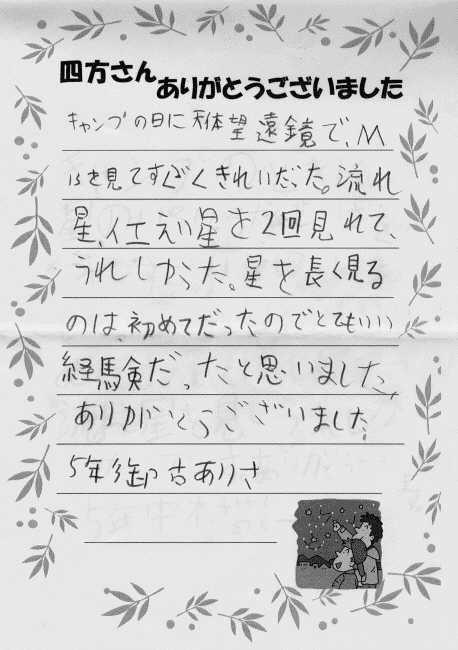 四方さん
ありがとうございました
キャンプの日に天体望遠鏡で、M
13を見てすごくきれいだった。流れ
星、人工えい星を2回見れて、
うれしかった。星を長く見る
のは、初めてだったのでとてもいい
経験だったと思いました。
ありがとうございました。
5年
ありさ